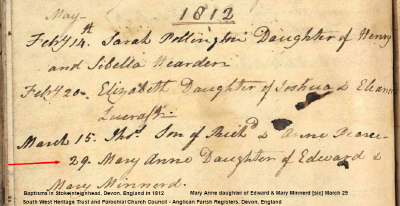 May
1812
Feby 14th. Sarah Pottington Daughter of Henry
and Sibella Hearder
Feby 20. Elizabeth Daughter of Joshua & Eleanor
Lucraft
March 15. Thos. Son of Richd & Anne Pearce
29. Mary Anne Daughter of Edward &
Mary Minnerd.
Baptisms in Stokeinteignhead, Devon, England in 1812 Mary Anne daughter of Edward & Mary Minnerd [sic] March 29
South West Heritage Trust and Parochial Church Council - Anglican Parish Registers, Devon, England